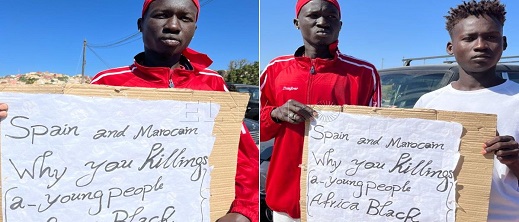 Spain and Marocain
Why you Killings
a-young people
Black
Spain and Marocain
Why you Killings
a-young people
Africa Black